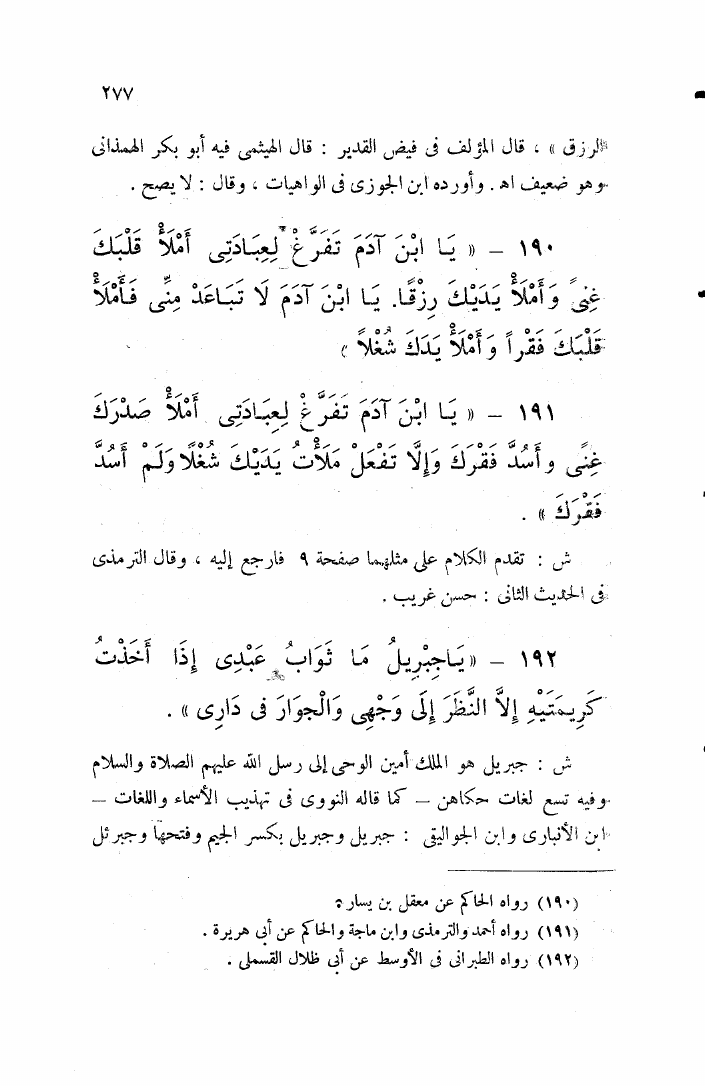 ٢٧٧
الرزق » ، قال المؤلف فى فيض القدير : قال الهيثمى فيه أبو بكر الهمذانى
وهو ضعيف اه . وأورده ابن الجوزى فى الواهيات ، وقال : لا يصح .
١٩٠ – « يَا ابْنَ آدَمَ تَفَرَّغْ لِعِبَادَتِى أَمْلَأْ قَلْبَكَ
غِنىً وَأَمْلَأْ يَدَيْكَ رِزْقًا. يَا ابْنَ آدَمَ لَا تَبَاعَدْ مِنِّى فَأَمْلَأْ
قَلْبَكَ فَقْراً وَأَمْلَأْ يَدَكَ شُغْلاً »
١٩١ – « يَا ابْنَ آدَمَ تَفَرَّغْ لِعِبَادَتِى أَمْلَأْ صَدْرَكَ
غِنًى وأَسُدَّ فَقْرَكَ وَإِلَّا تَفْعَلْ مَلَأْتُ يَدَيْكَ شُغْلًا وَلَمْ أَسُدَّ
فَقْرَكَ » .
ش : تقدم الكلام على مثلهما صفحة ٩ فارجع إليه ، وقال الترمذى
فى الحديث الثانى : حسن غريب .
١٩٢ – «يَاجِبْرِيلُ مَا ثَوَابُ عَبْدِى إِذَا أَخَذْتُ
كَرِيمَتَيْهِ إِلاَّ النَّظَرَ إِلَى وَجْهِى وَالْجوَارَ فى دَارِى » .
ش : جبريل هو الملك أمين الوحى إلى رسل الله عليهم الصلاة والسلام
وفيه تسع لغات حكاهن – كما قاله النووى فى تهذيب الأسماء واللغات –
ابن الأنبارى وابن الجواليقى : جبريل وجبريل بكسر الجيم وفتحها وجبرئل
(١٩٠) رواه الحاكم عن معقل بن يسار .
(١٩١) رواه أحمد والترمذى وابن ماجة والحاكم عن أبى هريرة .
(١٩٢) رواه الطبرانى فى الأوسط عن أبى ظلال القسملى .